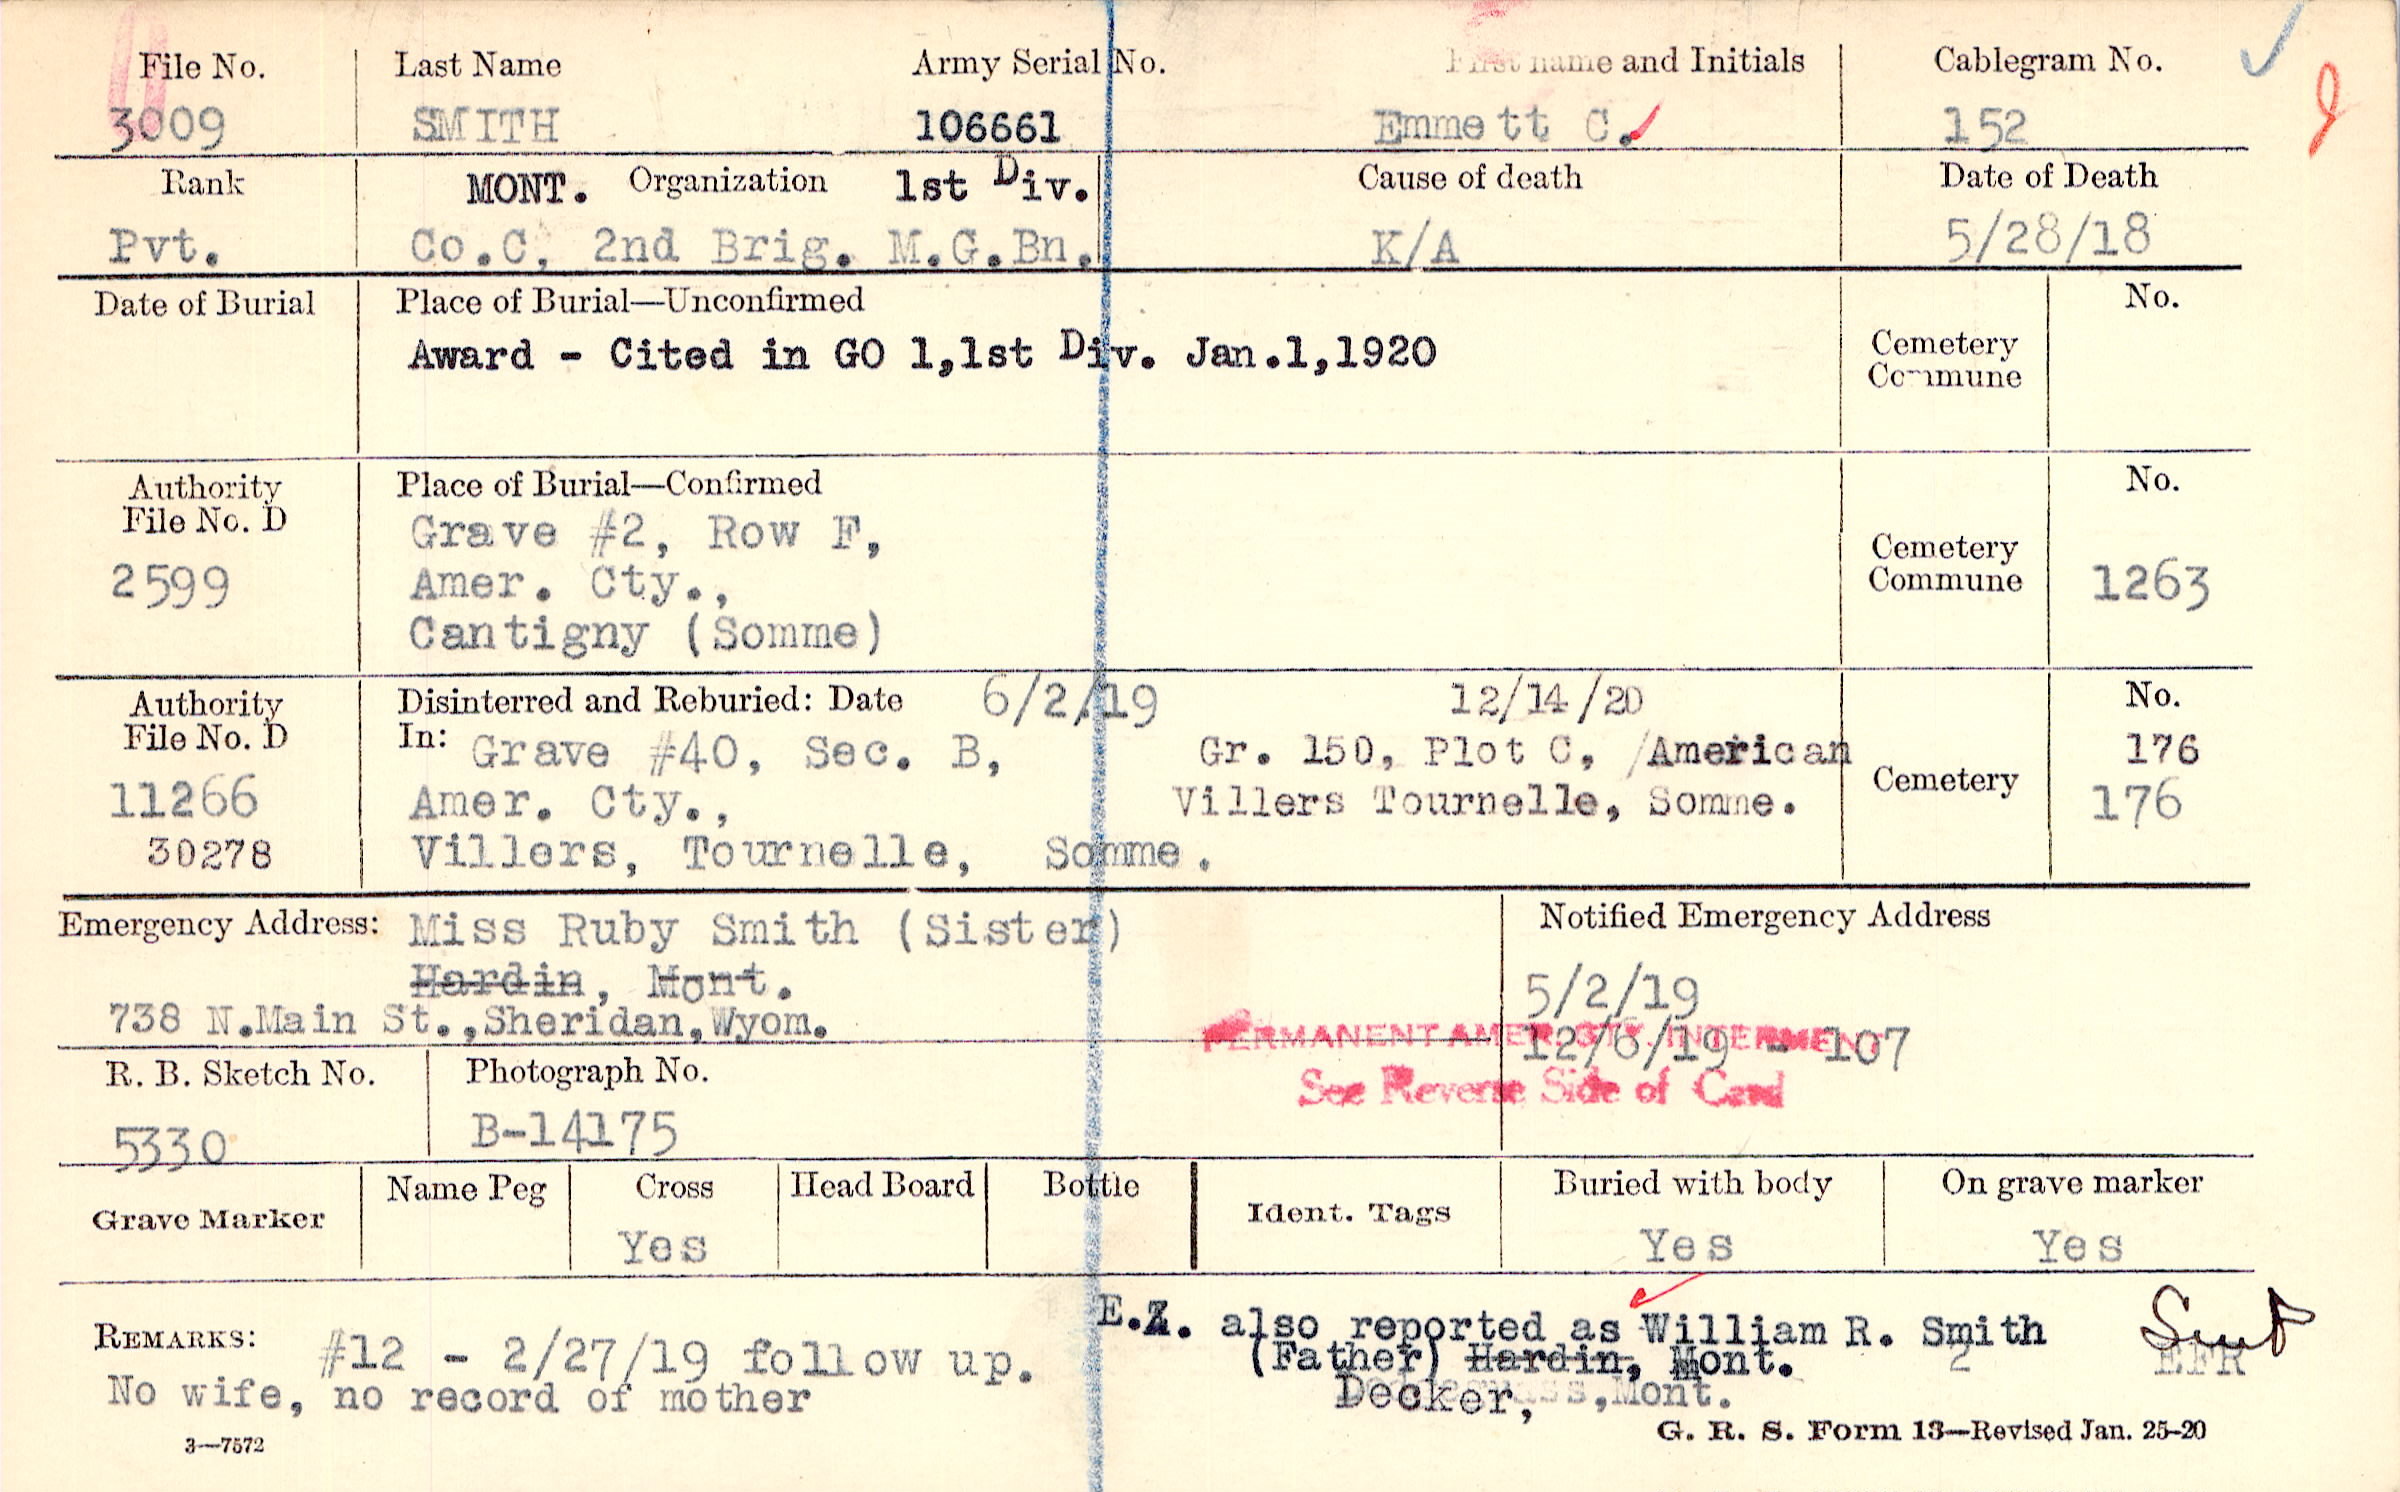 File No. Last Name Army Serial No. First name and Initials Cablegram No.
3009 SMITH 106661 Emmett C. 152
Rank MONT. Organization 1st Div. Cause of death Date of Death
Pvt. Co.C, 2nd Brig. M.G.Bn. K/A 5/28/18
Date of Burial Place of Burial—Unconfirmed No.
Award - Cited in GO 1,1st Div. Jan.1,1920 Cemetery
Commune
Authority Place of Burial—Confirmed No.
File No. D Grave #2, Row F,
2599 Amer. Cty., Cemetery
Commune 1263
Cantigny (Somme)
Authority Disinterred and Reburied: Date 6/2/19 12/14/20 No.
File No. D In: Grave #40, Sec. B, Gr. 150, Plot C, /American 176
11266 Amer. Cty., Villers Tournelle, Somme. Cemetery 176
30278 Villers, Tournelle, Somme.
Emergency Address: Miss Ruby Smith (Sister) Notified Emergency Address
Hardin, Mont. 5/2/19
738 N.Main St.,Sheridan,Wyom. 12/6/19 - 107
PERMANENT AMER. CTY. INTERMENT
See Reverse Side of Card
R. B. Sketch No. Photograph No.
5330 B-14175
Grave Marker Name Peg Cross Head Board Bottle Ident. Tags Buried with body On grave marker
Yes Yes Yes
E.A. also reported as William R. Smith
REMARKS: #12 - 2/27/19 follow up. (Father) Hardin, Mont. 2 EFR
No wife, no record of mother Decker, Mont.
3—7572 G. R. S. Form 13—Revised Jan. 25-20